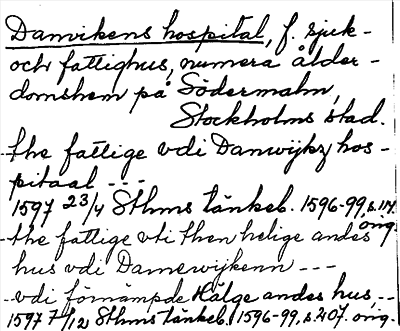 Danvikens hospital, f. sjuk-
och fattighus, numera ålder-
domshem på Södermalm,
Stockholms stad.
the fattige vdi Danwijkz hos-
pitaal ---
1597 23/4 Sthms tänkeb. 1596-99, s. 114.
orig.
the fattige vti then helige andes
hus vdi Damerwijkenn ---
-- vdi förnämpde Hälge andes hus, --
1597 7/12 Sthms tänkeb. 1596-99, s. 207. orig.